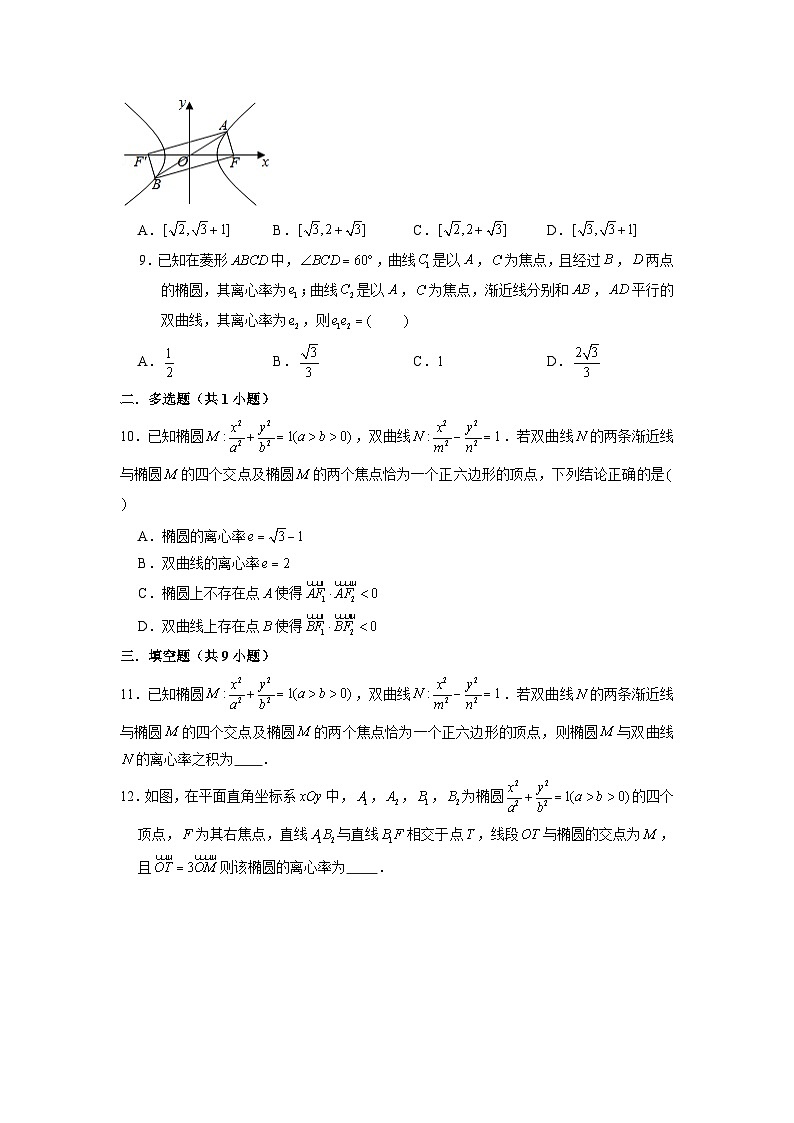 y
A
F′ O F x
B
A．[√2,√3+1] B．[√3,2+√3] C．[√2,2+√3] D．[√3,√3+1]
9．已知在菱形ABCD中，∠BCD=60°，曲线C₁是以A，C为焦点，且经过B，D两点
的椭圆，其离心率为e₁；曲线C₂是以A，C为焦点，渐近线分别和AB，AD平行的
双曲线，其离心率为e₂，则e₁e₂=( )
A．1/2 B．√3/3 C．1 D．2√3/3
二．多选题（共1小题）
10．已知椭圆M:x²/a²+y²/b²=1(a>b>0)，双曲线N:x²/m²−y²/n²=1．若双曲线N的两条渐近线
与椭圆M的四个交点及椭圆M的两个焦点恰为一个正六边形的顶点，下列结论正确的是(
)
A．椭圆的离心率e=√3−1
B．双曲线的离心率e=2
C．椭圆上不存在点A使得AF₁·AF₂<0
D．双曲线上存在点B使得BF₁·BF₂<0
三．填空题（共9小题）
11．已知椭圆M:x²/a²+y²/b²=1(a>b>0)，双曲线N:x²/m²−y²/n²=1．若双曲线N的两条渐近线
与椭圆M的四个交点及椭圆M的两个焦点恰为一个正六边形的顶点，则椭圆M与双曲线
N的离心率之积为____．
12．如图，在平面直角坐标系xOy中，A₁，A₂，B₁，B₂为椭圆x²/a²+y²/b²=1(a>b>0)的四个
顶点，F为其右焦点，直线A₁B₂与直线B₁F相交于点T，线段OT与椭圆的交点为M，
且OT=3OM则该椭圆的离心率为____．